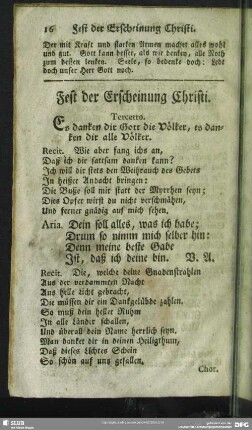 16 Fest der Erscheinung Christi.
Der mit Kraft und starken Armen machet alles wohl
und gut. Gott kann besser, als wir denken, alle Noth
zum besten lenken. Seele, so bedenke doch: Lebt
doch unser Herr Gott noch.
Fest der Erscheinung Christi.
Terzetto.
Es danken dir Gott die Völker, es dan-
ken dir alle Völker.
Recit. Wie aber fang ichs an,
Daß ich dir sattsam danken kann?
Ich will dir stets den Weihrauch des Gebets
In heißer Andacht bringen:
Die Buße soll mir statt der Myrrhen seyn;
Dies Opfer wirst du nicht verschmähen,
Und ferner gnädig auf mich sehen,
Aria. Dein soll alles, was ich habe;
Drum so nimm mich selber hin:
Denn meine beste Gabe
Ist, daß ich deine bin. V. A.
Recit. Die, welche deine Gnadenstrahlen
Aus der verdammten Nacht
Ans helle Licht gebracht,
Die müssen dir ein Dankgelübde zahlen.
So muß dein heller Ruhm
In alle Länder schallen,
Und überall dein Name herrlich seyn.
Man danket dir in deinen Heiligthum,
Daß dieses Lichtes Schein
So schön auf uns gefallen.
Chor.
SLUB